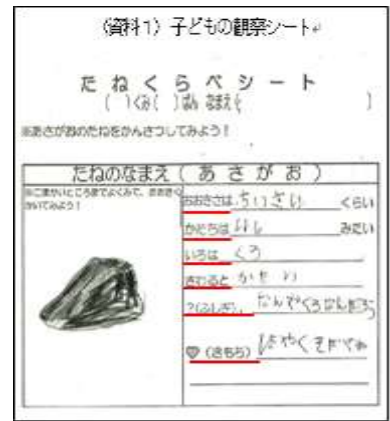 （資料1）子どもの観察シート↵
たねくらべシート
（　）くみ（　）ばん なまえ（　　　）
※あさがおのたねをかんさつしてみよう！
たねのなまえ（ あ さ が お ）
※こまかいところまでよくみて、おおきくかいてみよう！
おおきさは ちいさい くらい
かたちは いし みたい
いろは くろ
さわると かたい
?(ふしぎ)、なんでくろなんだろ
♡（きもち）はやくそだってね